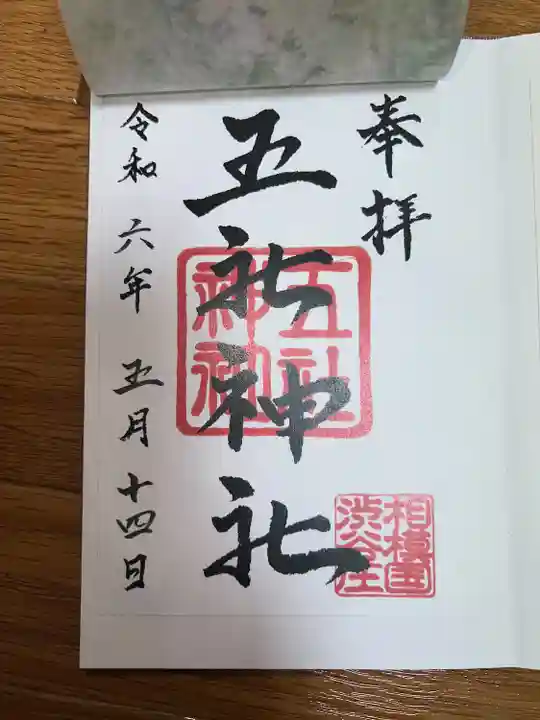 奉拝
五社神社
五社
神社
相模国
渋谷庄
令和 六年 五月 十四日